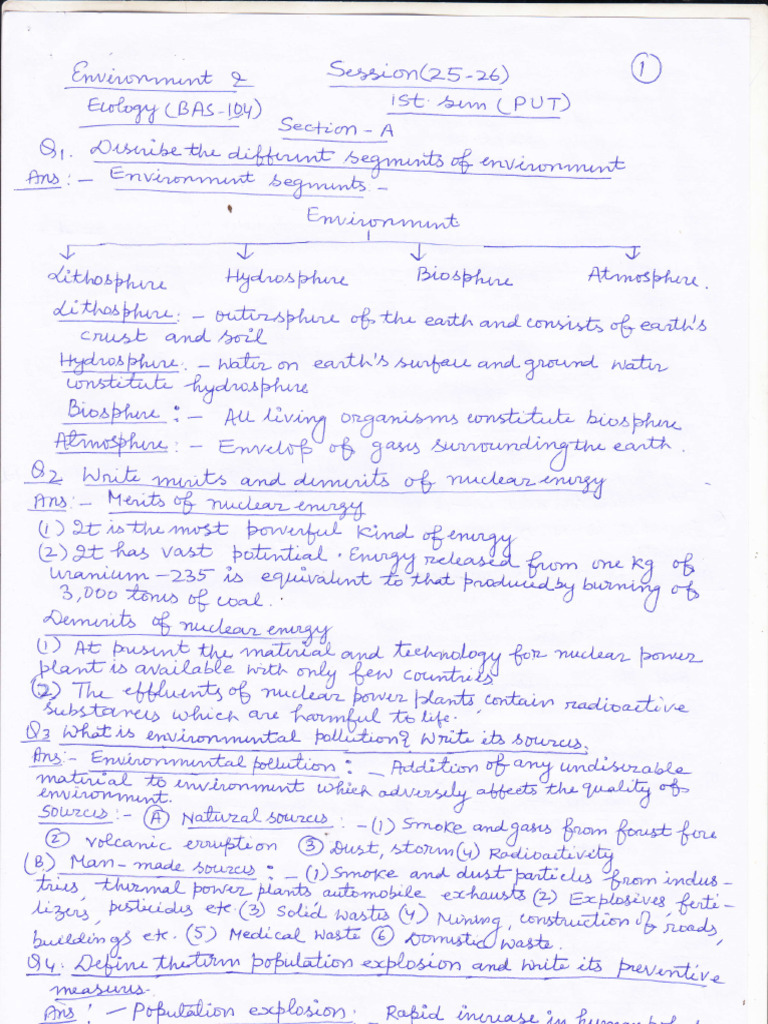 Environment & Session(25-26) 1
Ecology (BAS-104) 1st sem (PUT)
Section - A
Q1. Describe the different segments of environment
Ans :- Environment segments -
Environment
Lithosphere Hydrosphere Biosphere Atmosphere.
Lithosphere :- outersphere of the earth and consists of earth's
crust and soil
Hydrosphere :- water on earth's surface and ground water
constitute hydrosphere
Biosphere :- All living organisms constitute biosphere
Atmosphere :- Envelop of gases surrounding the earth.
Q2 Write merits and demerits of nuclear energy
Ans :- Merits of nuclear energy
(1) It is the most powerful kind of energy
(2) It has vast potential. Energy released from one kg of
uranium-235 is equivalent to that produced by burning of
3,000 tons of coal.
Demerits of nuclear energy
(1) At present the material and technology for nuclear power
plant is available with only few countries
(2) The effluents of nuclear power plants contain radioactive
substances which are harmful to life.
Q3 What is environmental pollution? Write its sources.
Ans:- Environmental pollution :- Addition of any undisirable
material to environment which adversely affects the quality of
environment.
Sources :- (A) Natural sources :- (1) Smoke and gases from forest fire
(2) volcanic erruption (3) Dust, storm (4) Radioactivity
(B) Man-made sources :- (1) Smoke and dust particles from indus-
tries, thermal power plants automobile exhausts (2) Explosives ferti-
lizers, pesticides etc. (3) Solid wastes (4) Mining, construction of roads,
buildings etc. (5) Medical waste (6) Domestic waste.
Q4. Define the term population explosion and write its preventive
measures.
Ans :- Population explosion. Rapid increase in human